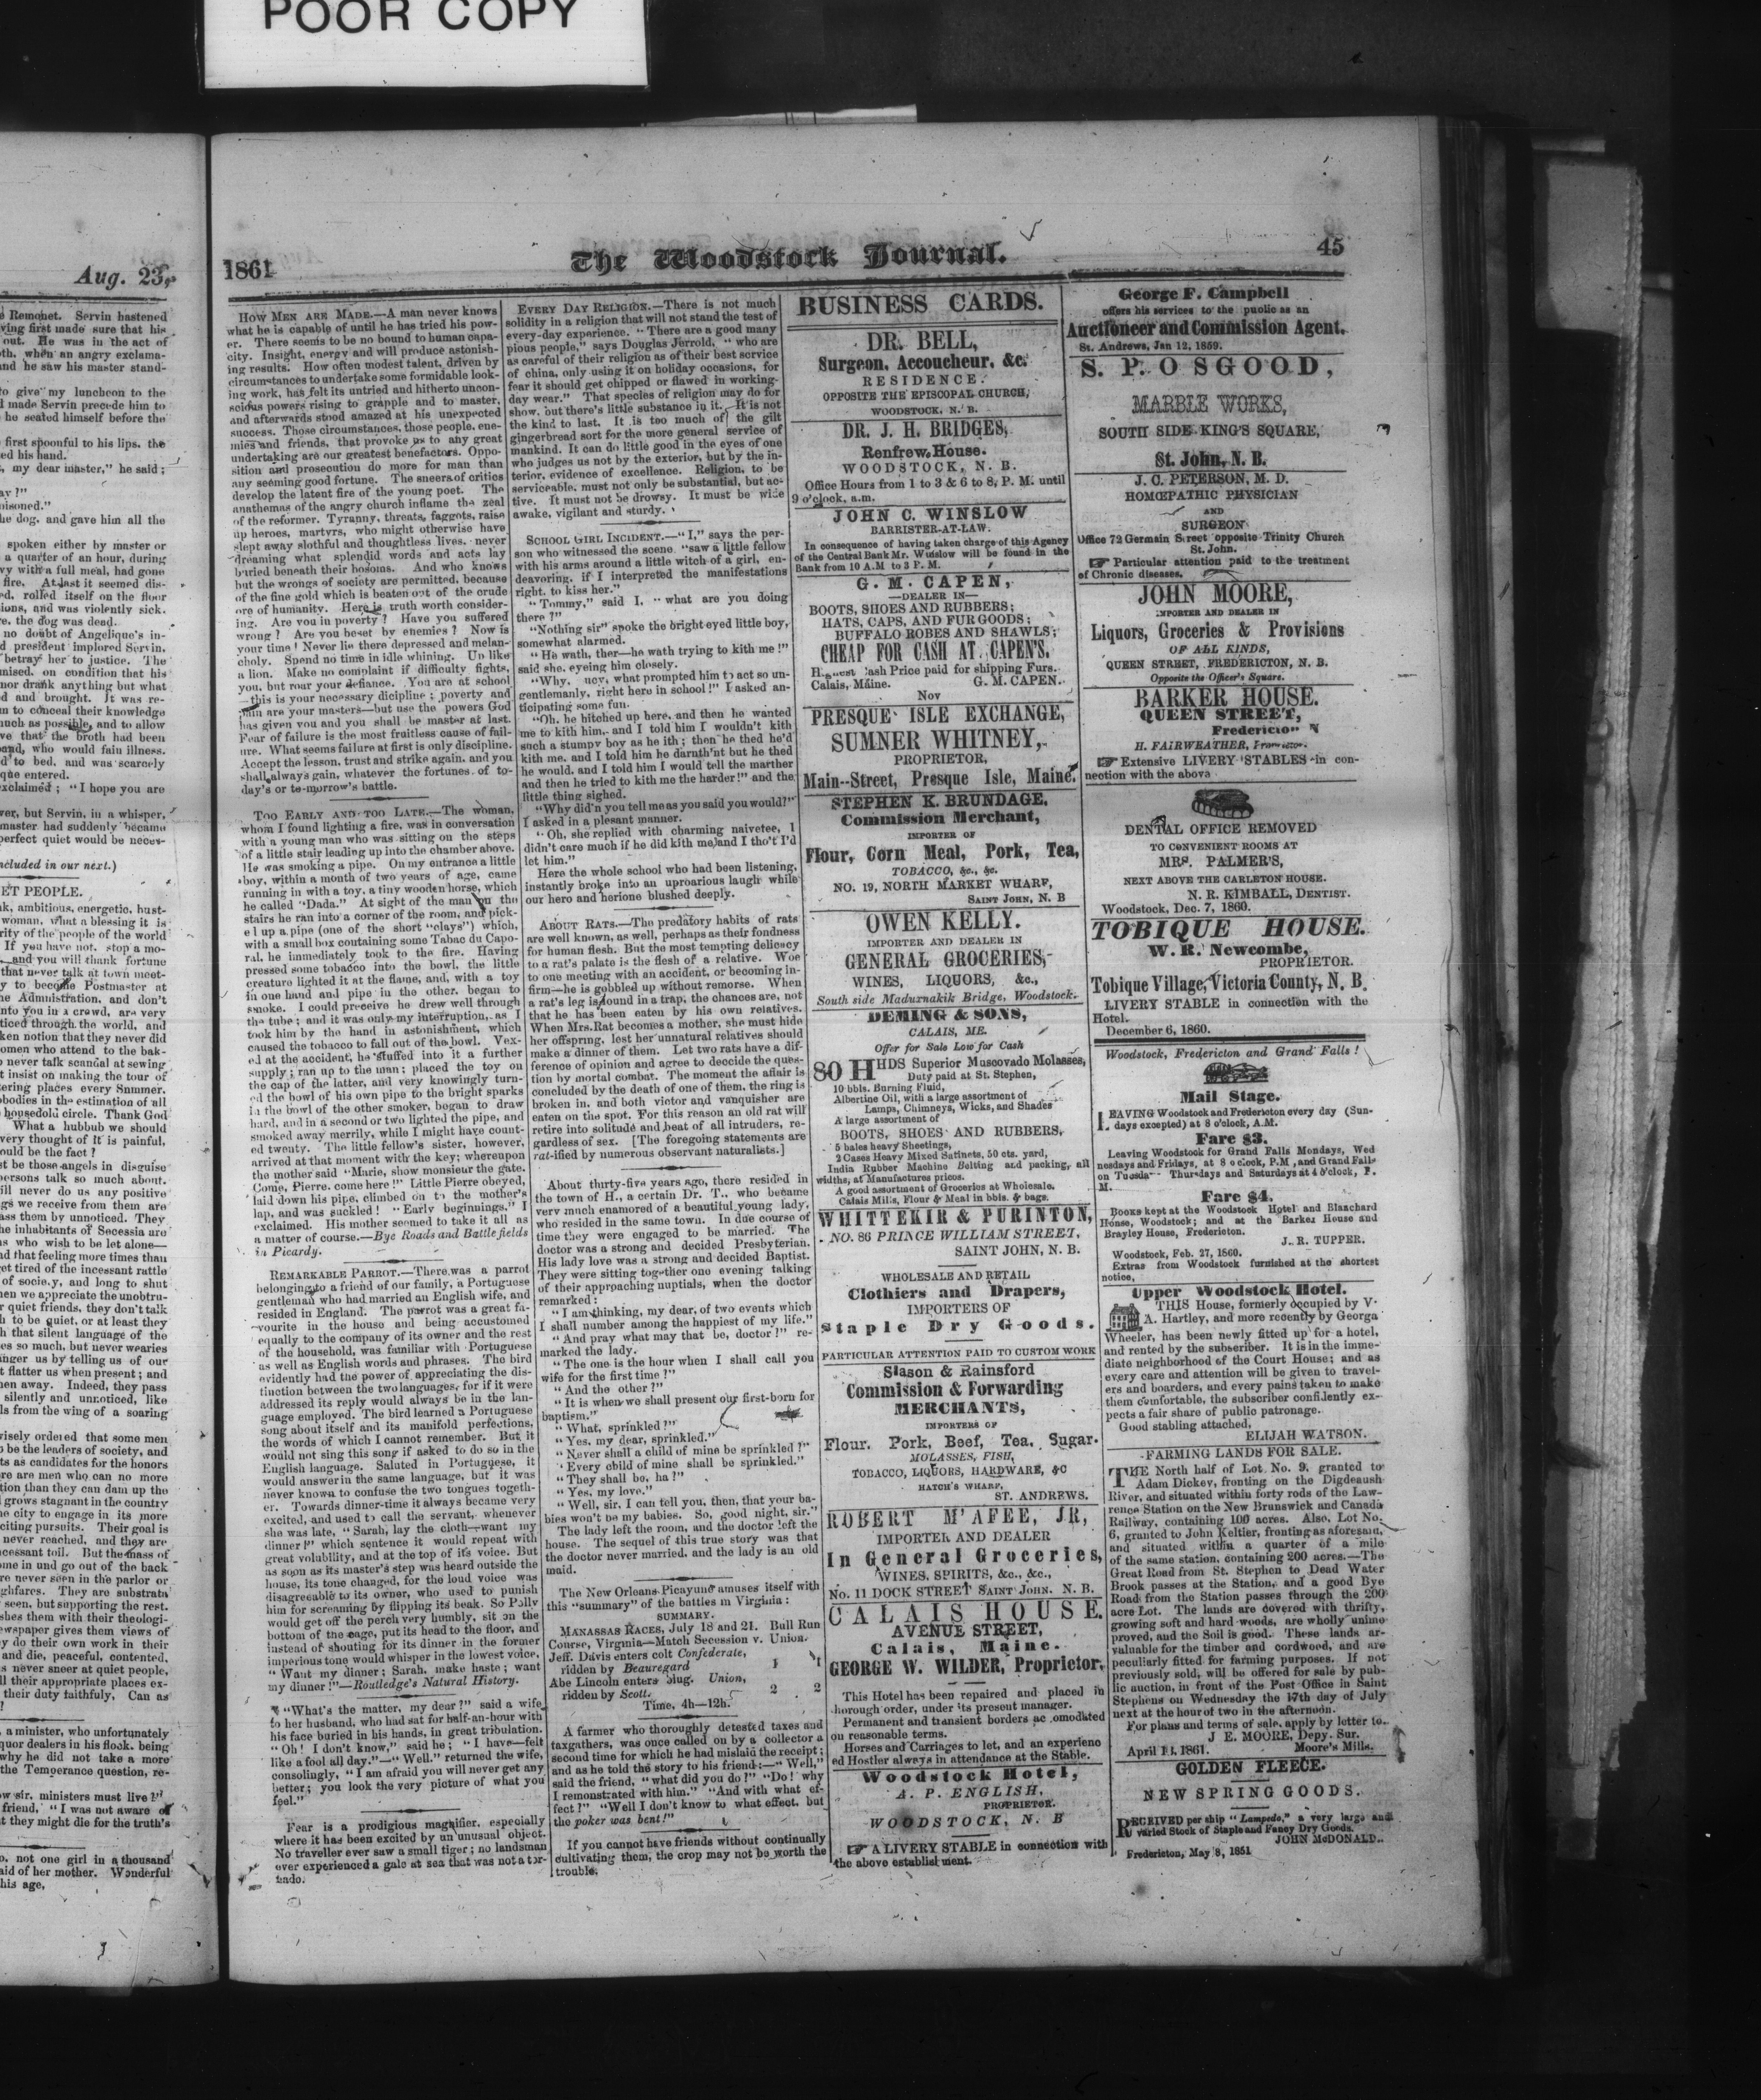 POOR COPY
Aug. 23,
1861
The Woodstock Journal.
45
e Remonet. Servin hastened
ving first made sure that his
out. He was in the act of
oth, when an angry exclama-
and he saw his master stand-
to give my luncheon to the
d made Servin precede him to
he seated himself before the
first spoonful to his lips, the
ed his hand.
, my dear master," he said;
ay?"
oisoned."
he dog, and gave him all the
spoken either by master or
a quarter of an hour, during
vy with a full meal, had gone
fire. At last it seemed dis-
ed, rolled itself on the floor
sions, and was violently sick.
re, the dog was dead.
no doubt of Angelique's in-
d president implored Servin,
betray her to justice. The
mised, on condition that his
nor drank anything but what
d and brought. It was re-
m to conceal their knowledge
much as possible, and to allow
ve that the broth had been
and, who would fain illness.
d to bed, and was scarcely
que entered.
exclaimed; "I hope you are
ver, but Servin, in a whisper,
master had suddenly became
perfect quiet would be neces-
ncluded in our next.)
ET PEOPLE.
ak, ambitious, energetic, hust-
woman, what a blessing it is
rity of the people of the world
If you have not, stop a mo-
and you will thank fortune
that never talk at town meet-
y to become Postmaster at
he Admnistration, and don't
nto you in a crowd, are very
ticed through the world, and
ken notion that they never did
omen who attend to the bak-
o never talk scandal at sewing
t insist on making the tour of
tering places every Summer.
obodies in the estimation of all
housedold circle. Thank God
What a hubbub we should
very thought of it is painful,
ould be the fact?
st be those angels in disguise
persons talk so much about.
ill never do us any positive
gs we receive from them are
ass them by unnoticed. They
he inhabitants of Secessia are
s who wish to be let alone—
nd that feeling more times than
et tired of the incessant rattle
of society, and long to shut
hen we appreciate the unobtru-
r quiet friends, they don't talk
h to be quiet, or at least they
h that silent language of the
es so much, but never wearies
nger us by telling us of our
t flatter us when present; and
hen away. Indeed, they pass
silently and unnoticed, like
ls from the wing of a soaring
wisely ordered that some men
o be the leaders of society, and
ts as candidates for the honors
re are men who can no more
tion than they can dam up the
l grows stagnant in the country
he city to engage in its more
citing pursuits. Their goal is
never reached, and they are
cessant toil. But the mass of
me in und go out of the back
re never seen in the parlor or
ghfares. They are substrata
seen, but supporting the rest.
shes them with their theologi-
ewspaper gives them views of
y do their own work in their
and die, peaceful, contented,
s never sneer at quiet people,
ll their appropriate places ex-
their duty faithfuly, Can as
?
, a minister, who unfortunately
quor dealers in his flock, being
why he did not take a more
the Temperance question, re-
ow sir, ministers must live?"
friend, "I was not aware of
t they might die for the truth's
o, not one girl in a thousand
aid of her mother. Wonderful
his age,
HOW MEN ARE MADE.—A man never knows
what he is capable of until he has tried his pow-
er. There seems to be no bound to human capa-
city. Insight, energy and will produce astonish-
ing results. How often modest talent, driven by
circumstances to undertake some formidable look-
ing work, has felt its untried and hitherto uncon-
scious powers rising to grapple and to master,
and afterwards stood amazed at his unexpected
success. Those circumstances, those people, ene-
mies and friends, that provoke us to any great
undertaking are our greatest benefactors. Oppo-
sition and prosecution do more for man than
any seeming good fortune. The sneers of critics
develop the latent fire of the young poet. The
anathemas of the angry church inflame the zeal
of the reformer. Tyranny, threats, faggots, raise
up heroes, martyrs, who might otherwise have
slept away slothful and thoughtless lives, never
dreaming what splendid words and acts lay
buried beneath their bosoms. And who knows
but the wrongs of society are permitted, because
of the fine gold which is beaten out of the crude
ore of humanity. Here is truth worth consider-
ing. Are you in poverty? Have you suffered
wrong? Are you beset by enemies? Now is
your time! Never lie there depressed and melan-
choly. Spend no time in idle whining. Up like
a lion. Make no complaint if difficulty fights,
you, but roar your defiance. You are at school
—this is your necessary dicipline; poverty and
pain are your masters—but use the powers God
has given you and you shall be master at last.
Fear of failure is the most fruitless cause of fail-
ure. What seems failure at first is only discipline.
Accept the lesson, trust and strike again, and you
shall always gain, whatever the fortunes of to-
day's or te-morrow's battle.
TOO EARLY AND TOO LATE.—The woman,
whom I found lighting a fire, was in conversation
with a young man who was sitting on the steps
of a little stair leading up into the chamber above.
He was smoking a pipe. On my entrance a little
boy, within a month of two years of age, came
running in with a toy, a tiny wooden horse, which
he called "Dada." At sight of the man on the
stairs he ran into a corner of the room, and pick-
ed up a pipe (one of the short "clays") which,
with a small box containing some Tabac du Capo-
ral, he immediately took to the fire. Having
pressed some tobacco into the bowl, the little
creature lighted it at the flame, and, with a toy
in one hand and pipe in the other, began to
smoke. I could perceive he drew well through
the tube; and it was only my interruption, as I
took him by the hand in astonishment, which
caused the tobacco to fall out of the bowl. Vex-
ed at the accident, he stuffed into it a further
supply; ran up to the man; placed the toy on
the cap of the latter, and very knowingly turn-
ed the bowl of his own pipe to the bright sparks
in the bowl of the other smoker, began to draw
hard, and in a second or two lighted the pipe, and
smoked away merrily, while I might have count-
ed twenty. The little fellow's sister, however,
arrived at that moment with the key; whereupon
the mother said "Marie, show monsieur the gate.
Come, Pierre, come here!" Little Pierre obeyed,
laid down his pipe, climbed on to the mother's
lap, and was suckled! "Early beginnings," I
exclaimed. His mother seemed to take it all as
a matter of course.—Bye Roads and Battle fields
in Picardy.
REMARKABLE PARROT.—There was a parrot
belonging to a friend of our family, a Portuguese
gentleman who had married an English wife, and
resided in England. The parrot was a great fa-
vourite in the house and being accustomed
equally to the company of its owner and the rest
of the household, was familiar with Portuguese
as well as English words and phrases. The bird
evidently had the power of appreciating the dis-
tinction between the two languages, for if it were
addressed its reply would always be in the lan-
guage employed. The bird learned a Portuguese
song about itself and its manifold perfections,
the words of which I cannot remember. But it
would not sing this song if asked to do so in the
English language. Saluted in Portuguese, it
would answer in the same language, but it was
never known to confuse the two tongues togeth-
er. Towards dinner-time it always became very
excited, and used to call the servant, whenever
she was late, "Sarah, lay the cloth—want my
dinner!" which sentence it would repeat with
great volubility, and at the top of it's voice. But
as soon as its master's step was heard outside the
house, its tone changed, for the loud voice was
disagreeable to its owner, who used to punish
him for screaming by flipping its beak. So Polly
would get off the perch very humbly, sit on the
bottom of the cage, put its head to the floor, and
instead of shouting for its dinner in the former
imperious tone would whisper in the lowest voice,
"Want my dinner; Sarah, make haste; want
my dinner!"—Routledge's Natural History.
"What's the matter, my dear?" said a wife
to her husband, who had sat for half-an-hour with
his face buried in his hands, in great tribulation.
"Oh! I don't know," said he; "I have felt
like a fool all day."—"Well," returned the wife,
consolingly, "I am afraid you will never get any
better; you look the very picture of what you
feel."
Fear is a prodigious magnifier, especially
where it has been excited by an unusual object.
No traveller ever saw a small tiger; no landsman
ever experienced a gale at sea that was not a tor-
nado.
EVERY DAY RELIGION.—There is not much
solidity in a religion that will not stand the test of
every-day experience. "There are a good many
pious people," says Douglas Jerrold, "who are
as careful of their religion as of their best service
of china, only using it on holiday occasions, for
fear it should get chipped or flawed in working-
day wear." That species of religion may do for
show, but there's little substance in it. It is not
the kind to last. It is too much of the gilt
gingerbread sort for the more general service of
mankind. It can do little good in the eyes of one
who judges us not by the exterior, but by the in-
terior, evidence of excellence. Religion, to be
serviceable, must not only be substantial, but ac-
tive. It must not be drowsy. It must be wide
awake, vigilant and sturdy.
SCHOOL GIRL INCIDENT.—"I," says the per-
son who witnessed the scene, "saw a little fellow
with his arms around a little witch of a girl, en-
deavoring, if I interpreted the manifestations
right, to kiss her."
"Tommy," said I, "what are you doing
there?"
"Nothing sir" spoke the bright eyed little boy,
somewhat alarmed.
"He wath, ther—he wath trying to kith me!"
said she, eyeing him closely.
"Why, ucy, what prompted him to act so un-
gentlemanly, right here in school!" I asked an-
ticipating some fun.
"Oh, he hitched up here, and then he wanted
me to kith him, and I told him I wouldn't kith
such a stumpy boy as he ith; then he thed he'd
kith me, and I told him he darnth'nt but he thed
he would, and I told him I would tell the marther
and then he tried to kith me the harder!" and the
little thing sighed.
"Why did'n you tell me as you said you would?"
I asked in a plesant manner.
"Oh, she replied with charming naivetee, I
didn't care much if he did kith me, and I tho't I'd
let him."
Here the whole school who had been listening,
instantly broke into an uproarious laugh while
our hero and herione blushed deeply.
ABOUT RATS.—The predatory habits of rats
are well known, as well, perhaps as their fondness
for human flesh. But the most tempting delicacy
to a rat's palate is the flesh of a relative. Woe
to one meeting with an accident, or becoming in-
firm—he is gobbled up without remorse. When
a rat's leg is found in a trap, the chances are, not
that he has been eaten by his own relatives.
When Mrs. Rat becomes a mother, she must hide
her offspring, lest her unnatural relatives should
make a dinner of them. Let two rats have a dif-
ference of opinion and agree to deccide the ques-
tion by mortal combat. The moment the affair is
concluded by the death of one of them, the ring is
broken in, and both victor and vanquisher are
eaten on the spot. For this reason an old rat will
retire into solitude and beat of all intruders, re-
gardless of sex. [The foregoing statements are
rat-ified by numerous observant naturalists.]
About thirty-five years ago, there resided in
the town of H., a certain Dr. T., who became
very much enamored of a beautiful young lady,
who resided in the same town. In due course of
time they were engaged to be married. The
doctor was a strong and decided Presbyterian.
His lady love was a strong and decided Baptist.
They were sitting together one evening talking
of their approaching nuptials, when the doctor
remarked:
"I am thinking, my dear, of two events which
I shall number among the happiest of my life."
"And pray what may that be, doctor?" re-
marked the lady.
"The one is the hour when I shall call you
wife for the first time?"
"And the other?"
"It is when we shall present our first-born for
baptism."
"What, sprinkled?"
"Yes, my dear, sprinkled."
"Never shall a child of mine be sprinkled!"
"Every child of mine shall be sprinkled."
"They shall be, ha?"
"Yes, my love."
"Well, sir, I can tell you, then, that your ba-
bies won't be my babies. So, good night, sir."
The lady left the room, and the doctor left the
house. The sequel of this true story was that
the doctor never married, and the lady is an old
maid.
The New Orleans Picayune amuses itself with
this "summary" of the battles in Virginia:
SUMMARY.
MANASSAS RACES, July 18 and 21. Bull Run
Course, Virginia—Match Secession v. Union.
Jeff. Davis enters colt Confederate,
ridden by Beauregard 1 1
Abe Lincoln enters plug. Union,
ridden by Scott. 2 2
Time, 4h—12h.
A farmer who thoroughly detested taxes and
taxgathers, was once called on by a collector a
second time for which he had mislaid the receipt;
and as he told the story to his friend:—"Well,"
said the friend, "what did you do?" "Do! why
I remonstrated with him." "And with what ef-
fect?" "Well I don't know to what effect, but
the poker was bent!"
If you cannot have friends without continually
cultivating them, the crop may not be worth the
trouble.
BUSINESS CARDS.
DR. BELL,
Surgeon, Accoucheur, &c.
RESIDENCE.
OPPOSITE THE EPISCOPAL CHURCH,
WOODSTOCK, N. B.
DR. J. H. BRIDGES,
Renfrew House.
WOODSTOCK, N. B.
Office Hours from 1 to 3 & 6 to 8, P. M. until
9 o'clock, a.m.
JOHN C. WINSLOW
BARRISTER-AT-LAW.
In consequence of having taken charge of this Agency
of the Central Bank Mr. Winslow will be found in the
Bank from 10 A.M to 3 P. M.
G. M. CAPEN,
—DEALER IN—
BOOTS, SHOES AND RUBBERS;
HATS, CAPS, AND FUR GOODS;
BUFFALO ROBES AND SHAWLS;
CHEAP FOR CASH AT CAPEN'S.
Cash Price paid for shipping Furs.
Calais, Maine. G. M. CAPEN.
Nov
PRESQUE ISLE EXCHANGE,
SUMNER WHITNEY,
PROPRIETOR,
Main--Street, Presque Isle, Maine.
STEPHEN K. BRUNDAGE,
Commission Merchant,
IMPORTER OF
Flour, Corn Meal, Pork, Tea,
TOBACCO, &c., &c.
NO. 19, NORTH MARKET WHARF,
SAINT JOHN, N. B
OWEN KELLY.
IMPORTER AND DEALER IN
GENERAL GROCERIES,
WINES, LIQUORS, &c.,
South side Maduxnakik Bridge, Woodstock.
DEMING & SONS,
CALAIS, ME.
Offer for Sale Low for Cash
80 HHDS Superior Muscovado Molasses,
Duty paid at St. Stephen,
10 bbls. Burning Fluid,
Albertine Oil, with a large assortment of
Lamps, Chimneys, Wicks, and Shades
A large assortment of
BOOTS, SHOES AND RUBBERS,
5 bales heavy Sheetings,
2 Cases Heavy Mixed Satinets, 50 cts. yard,
India Rubber Machine Belting and packing, all
widths, at Manufactures prices.
A good assortment of Groceries at Wholesale.
Calais Mills, Flour & Meal in bbls. & bags.
WHITTEKIR & PURINTON,
NO. 86 PRINCE WILLIAM STREET,
SAINT JOHN, N. B.
WHOLESALE AND RETAIL
Clothiers and Drapers,
IMPORTERS OF
Staple Dry Goods.
PARTICULAR ATTENTION PAID TO CUSTOM WORK
Slason & Rainsford
Commission & Forwarding
MERCHANTS,
IMPORTERS OF
Flour, Pork, Beef, Tea, Sugar.
MOLASSES, FISH,
TOBACCO, LIQUORS, HARDWARE, &C
HATCH'S WHARF,
ST. ANDREWS.
ROBERT M'AFEE, JR,
IMPORTER AND DEALER
In General Groceries,
WINES, SPIRITS, &c., &c.,
No. 11 DOCK STREET SAINT JOHN. N. B.
CALAIS HOUSE.
AVENUE STREET,
Calais, Maine.
GEORGE W. WILDER, Proprietor,
This Hotel has been repaired and placed in
horough order, under its present manager.
Permanent and transient borders ac omodated
on reasonable terms.
Horses and Carriages to let, and an experienc
ed Hostler always in attendance at the Stable.
Woodstock Hotel,
A. P. ENGLISH,
PROPRIETOR.
WOODSTOCK, N. B
☞ A LIVERY STABLE in connection with
the above establishment.
George F. Campbell
offers his services to the puolic as an
Auctioneer and Commission Agent.
St. Andrews, Jan 12, 1859.
S. P. OSGOOD,
MARBLE WORKS,
SOUTH SIDE KING'S SQUARE,
St. John, N. B.
J. C. PETERSON, M. D.
HOMŒPATHIC PHYSICIAN
AND
SURGEON
Office 72 Germain Street opposite Trinity Church
St. John.
☞ Particular attention paid to the treatment
of Chronic diseases.
JOHN MOORE,
IMPORTER AND DEALER IN
Liquors, Groceries & Provisions
OF ALL KINDS,
QUEEN STREET, FREDERICTON, N. B.
Opposite the Officer's Square.
BARKER HOUSE.
QUEEN STREET,
Fredericton
H. FAIRWEATHER, Proprietor.
☞ Extensive LIVERY STABLES in con-
nection with the above
DENTAL OFFICE REMOVED
TO CONVENIENT ROOMS AT
MRS. PALMER'S,
NEXT ABOVE THE CARLETON HOUSE.
N. R. KIMBALL, DENTIST.
Woodstock, Dec. 7, 1860.
TOBIQUE HOUSE.
W. R. Newcombe,
PROPRIETOR.
Tobique Village, Victoria County, N. B.
LIVERY STABLE in connection with the
Hotel.
December 6, 1860.
Woodstock, Fredericton and Grand Falls!
Mail Stage.
LEAVING Woodstock and Fredericton every day (Sun-
days excepted) at 8 o'clock, A.M.
Fare $3.
Leaving Woodstock for Grand Falls Mondays, Wed
nesdays and Fridays, at 8 o'clock, P.M, and Grand Falls
on Tuesda-- Thursdays and Saturdays at 4 o'clock, P.
M.
Fare $4.
Books kept at the Woodstock Hotel and Blanchard
House, Woodstock; and at the Barker House and
Brayley House, Fredericton.
J. R. TUPPER.
Woodstock, Feb. 27, 1860.
Extras from Woodstock furnished at the shortest
notice,
Upper Woodstock Hotel.
THIS House, formerly occupied by V.
A. Hartley, and more recently by Georga
Wheeler, has been newly fitted up for a hotel,
and rented by the subscriber. It is in the imme-
diate neighborhood of the Court House; and as
every care and attention will be given to travel-
ers and boarders, and every pains taken to make
them comfortable, the subscriber confidently ex-
pects a fair share of public patronage.
Good stabling attached,
ELIJAH WATSON.
FARMING LANDS FOR SALE.
THE North half of Lot No. 9, granted to
Adam Dickey, fronting on the Digdeaush
River, and situated within forty rods of the Law-
rence Station on the New Brunswick and Canada
Railway, containing 100 acres. Also, Lot No.
6, granted to John Keltier, fronting as aforesaid,
and situated within a quarter of a mile
of the same station, containing 200 acres.—The
Great Road from St. Stephen to Dead Water
Brook passes at the Station, and a good Bye
Road from the Station passes through the 200
acre Lot. The lands are covered with thrifty,
growing soft and hard woods, are wholly unimo
proved, and the Soil is good. These lands ar-
valuable for the timber and cordwood, and are
peculiarly fitted for farming purposes. If not
previously sold, will be offered for sale by pub-
lic auction, in front of the Post Office in Saint
Stephens on Wednesday the 17th day of July
next at the hour of two in the afternoon.
For plans and terms of sale, apply by letter to
J E. MOORE, Depy. Sur.
April 13, 1861. Moore's Mills.
GOLDEN FLEECE.
NEW SPRING GOODS.
RECEIVED per ship "Lampedo," a very large and
varied Stock of Staple and Fancy Dry Goods.
JOHN McDONALD.
Fredericton, May 8, 1851